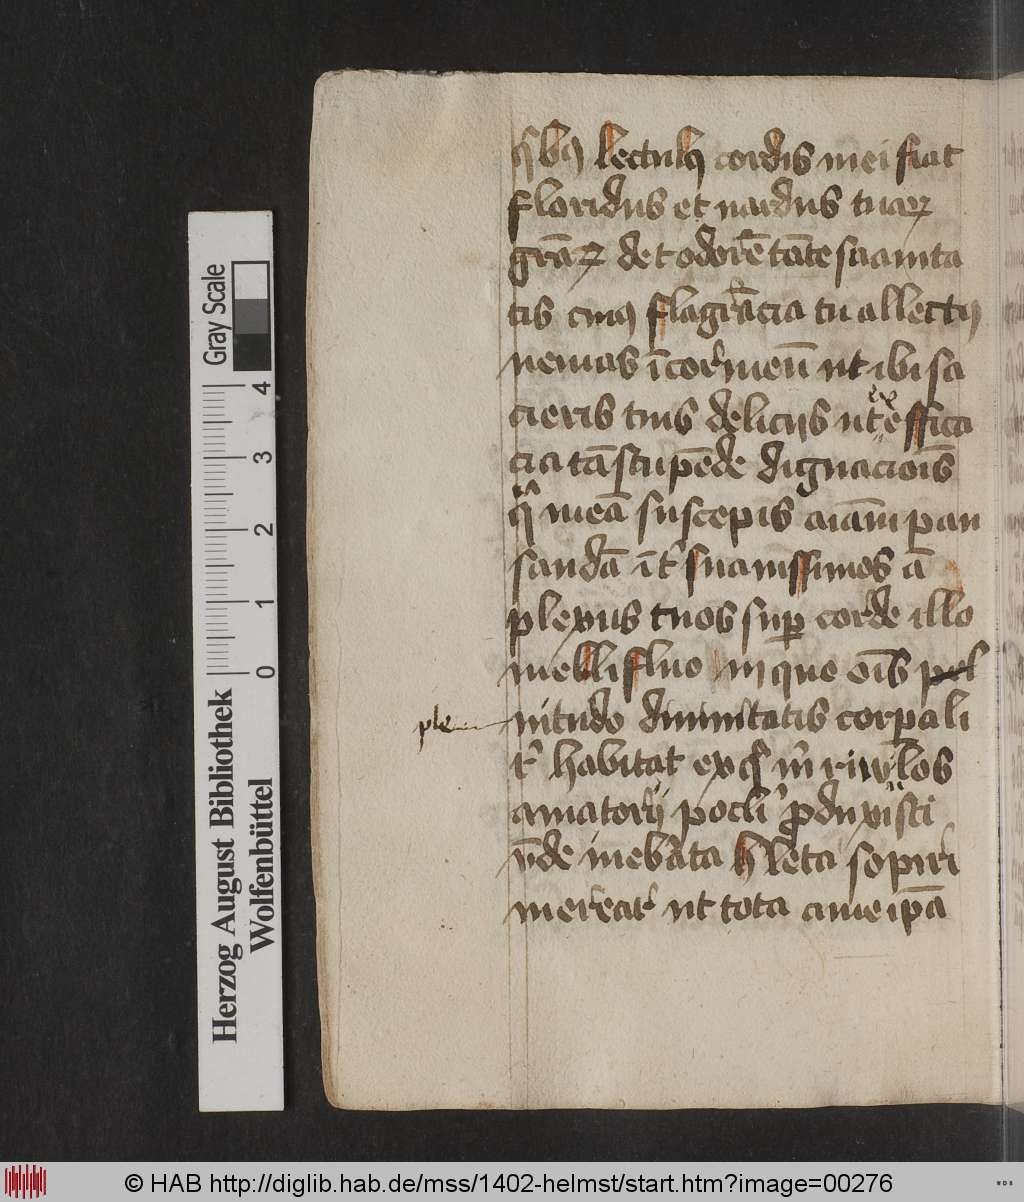 qͥbꝫ lectulꝫ cordis mei fiat
floridus et nardus tuaꝝ
gr̄aꝝ det odorē tāte suauita
tis cuiꝫ flagrācia tu allectꝫ
venias ī cor meū ut ibi sa
cieris tuis deliciis ut ex effica
cia tā stupēde dignacōis
qͣ meā suscepis aīam pau
sandā īt suauissimos ā
plexus tuos suꝑ corde illo
mellifluo in quo oīs
ple nitudo diuinitatis corꝑali
tͬ habitat ex qͦ riuulos
amatorii pocli ꝓduxisti
vn̄de inebͥata leta sopiri
merear ut tota a me ip̄a
Gray Scale
4
3
2
1
0
Herzog August Bibliothek
Wolfenbüttel
© HAB http://diglib.hab.de/mss/1402-helmst/start.htm?image=00276